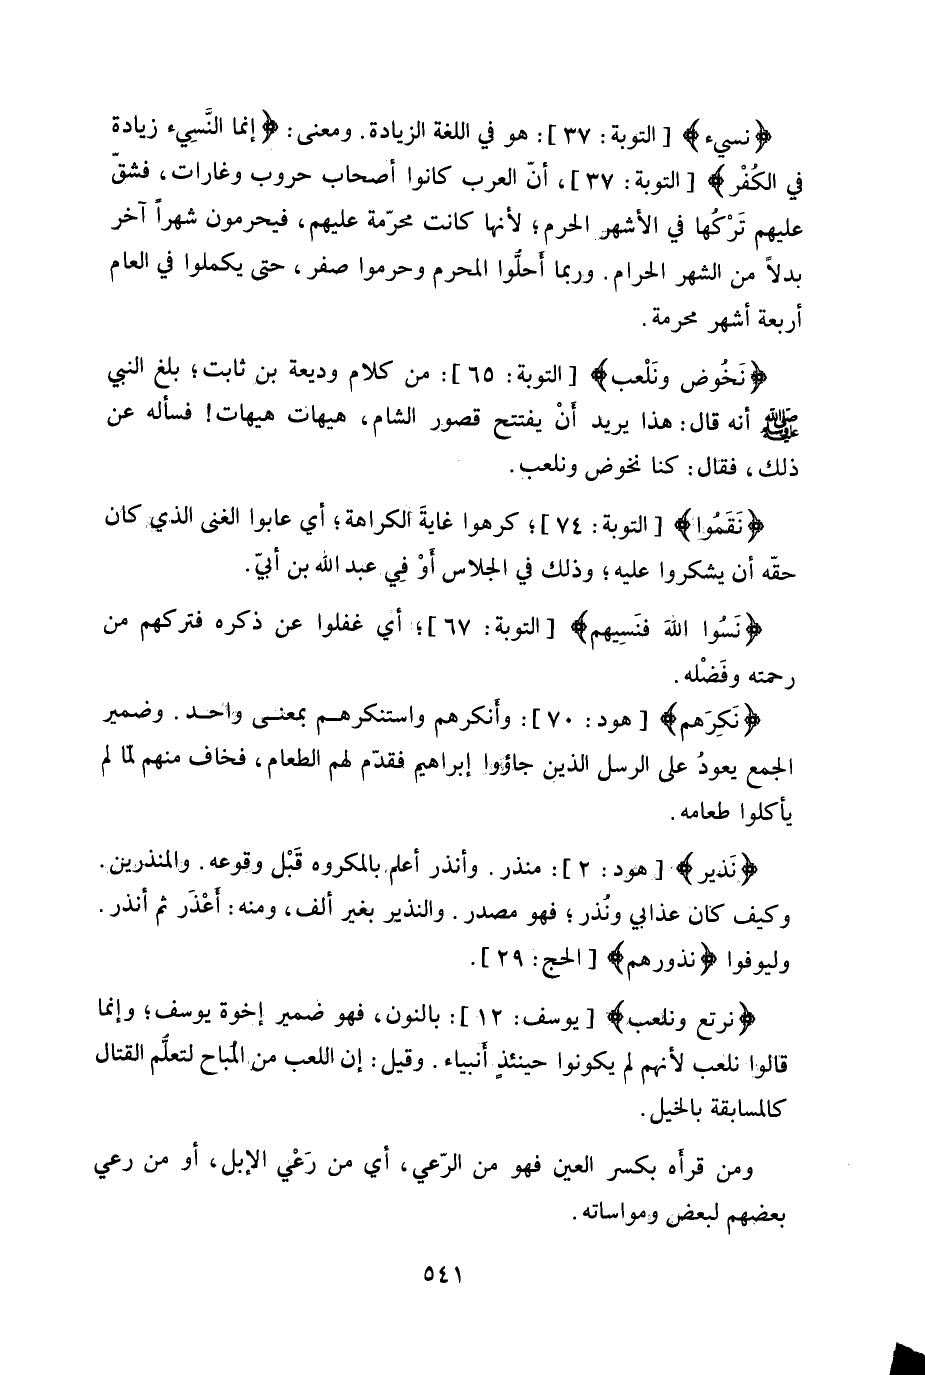 ﴿نسيء﴾ [التوبة: ٣٧]: هو في اللغة الزيادة. ومعنى: ﴿إنما النَّسِيء زيادة
في الكُفْر﴾ [التوبة: ٣٧]، أنّ العرب كانوا أصحاب حروب وغارات، فشقّ
عليهم تَرْكُها في الأشهر الحرم؛ لأنها كانت محرّمة عليهم، فيحرمون شهراً آخر
بدلاً من الشهر الحرام. وربما أَحلُّوا المحرم وحرموا صفر، حتى يكملوا في العام
أربعة أشهر محرمة.
﴿نَخُوض ونَلْعب﴾ [التوبة: ٦٥]: من كلام وديعة بن ثابت؛ بلغ النبي
ﷺ أنه قال: هذا يريد أنْ يفتتح قصور الشام، هيهات هيهات! فسأله عن
ذلك، فقال: كنا نخوض ونلعب.
﴿نَقَمُوا﴾ [التوبة: ٧٤]؛ كرهوا غايةَ الكراهة؛ أي عابوا الغنى الذي كان
حقّه أن يشكروا عليه؛ وذلك في الجلاس أَوْ فِي عبد الله بن أبيّ.
﴿نَسُوا اللهَ فنَسِيهم﴾ [التوبة: ٦٧]؛ أي غفلوا عن ذكره فتركهم من
رحمته وفَضْله.
﴿نَكِرَهم﴾ [هود: ٧٠]: وأَنكرهم واستنكرهم بمعنى واحد. وضمير
الجمع يعودُ على الرسل الذين جاؤوا إبراهيم فقدّم لهم الطعام، فخاف منهم لما لم
يأكلوا طعامه.
﴿نَذير﴾ [هود: ٢]: منذر. وأنذر أعلم بالمكروه قَبْل وقوعه. والمنذرين.
وكيف كان عذابي ونُذر؛ فهو مصدر. والنذير بغير ألف، ومنه: أَعْذَر ثم أنذر.
وليوفوا ﴿نذورهم﴾ [الحج: ٢٩].
﴿نرتع ونلعب﴾ [يوسف: ١٢]: بالنون، فهو ضمير إخوة يوسف؛ وإنما
قالوا نلعب لأنهم لم يكونوا حينئذٍ أَنبياء. وقيل: إن اللعب من المُباح لتعلُّم القتال
كالمسابقة بالخيل.
ومن قرأَه بكسر العين فهو من الرّعي، أي من رَعْي الإبل، أو من رعي
بعضهم لبعض ومواساته.
٥٤١